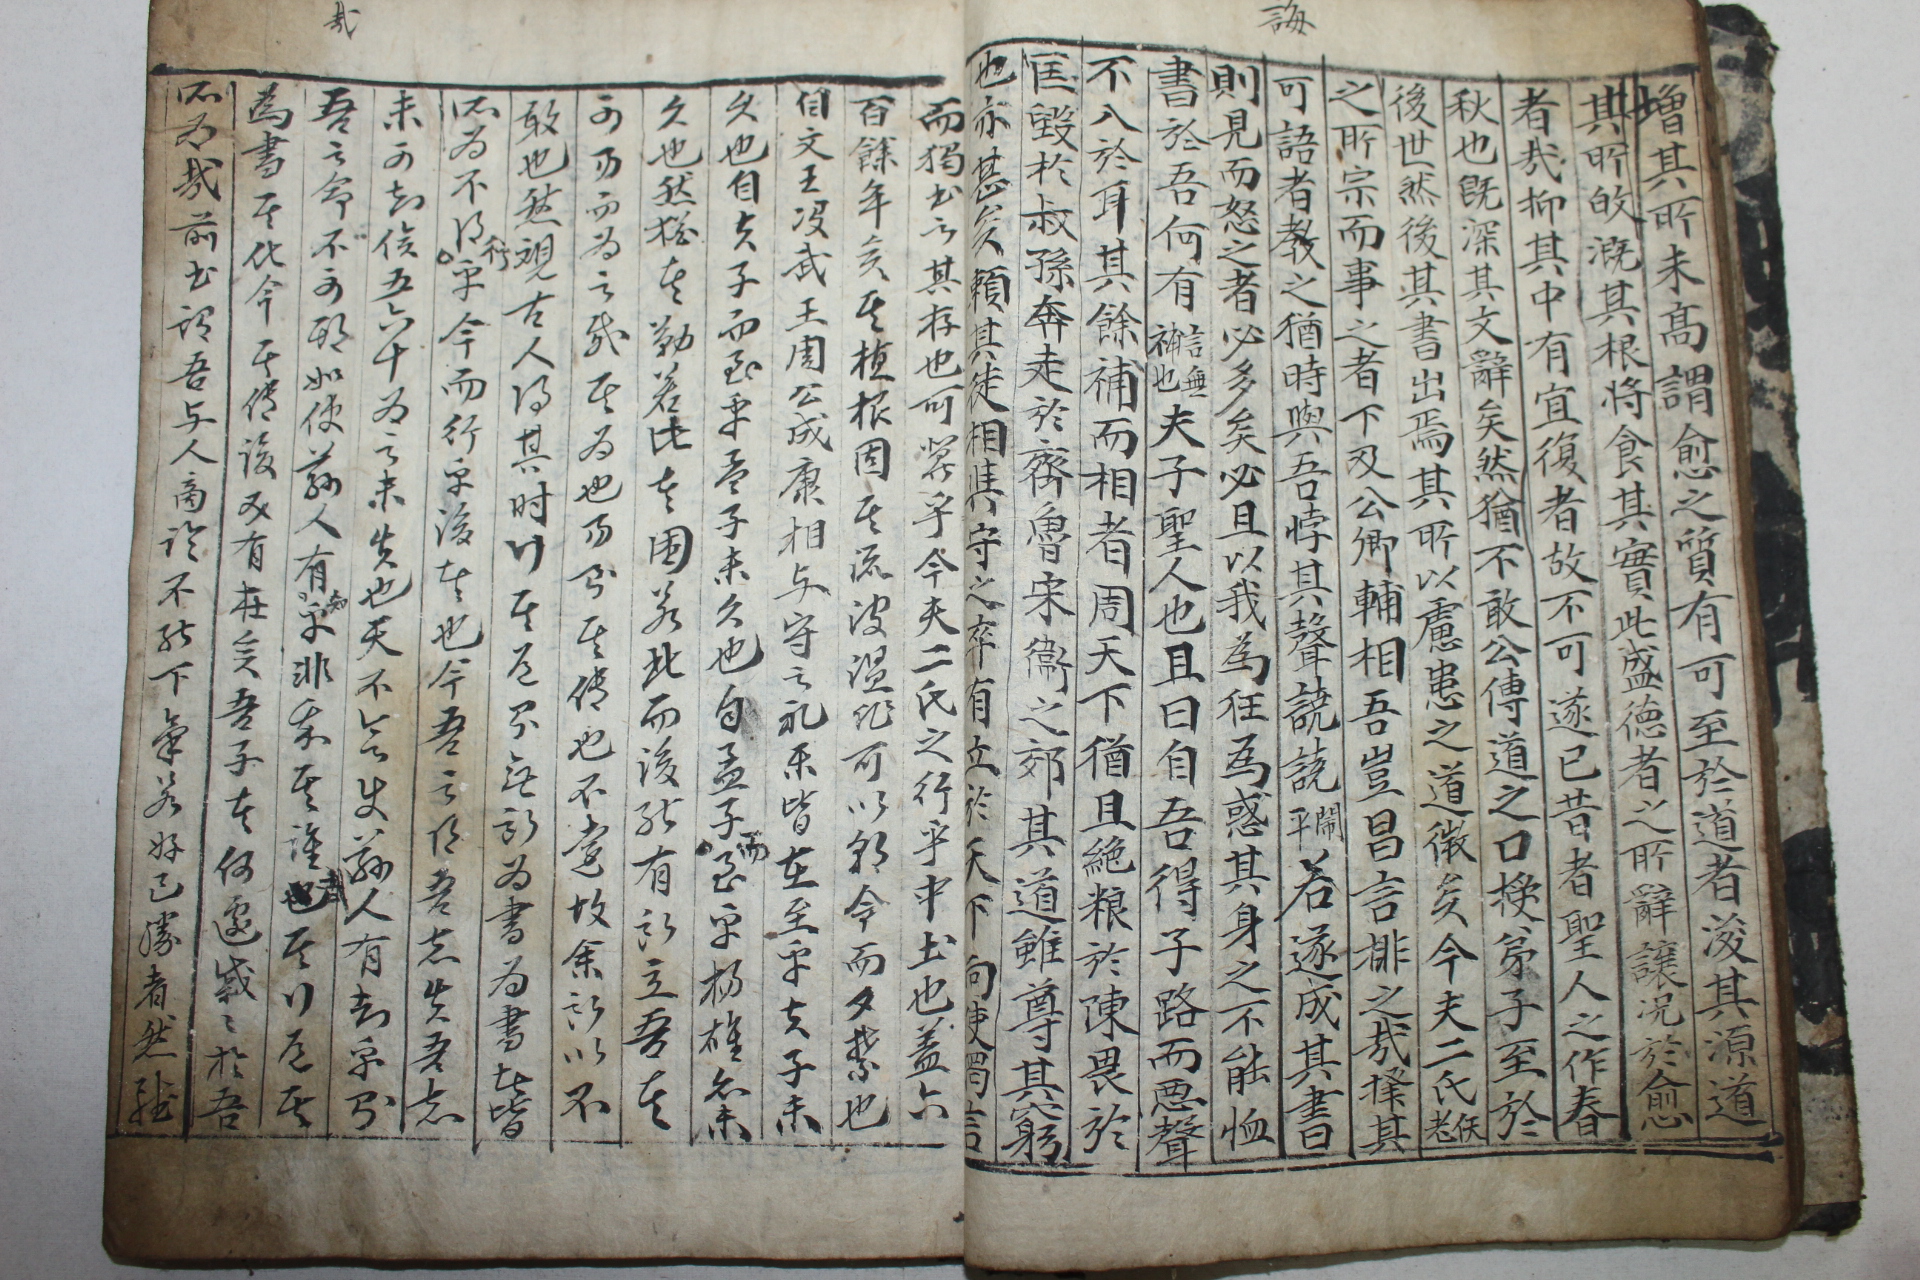 誨
增其所未高謂愈之質有可至於道者浚其源道
其所皈漑其根將食其實此盛德者之所辭讓況於愈
者哉抑其中有宜復者故不可遂已昔者聖人之作春
秋也旣深其文辭矣然猶不敢公傳道之口授弟子至於
後世然後其書出焉其所以慮患之道微矣今夫二氏佚老
之所宗而事之者下及公卿輔相吾豈昌言排之哉擇其
可語者敎之猶時與吾悖其聲譊譊閙平若遂成其書
則見而怒之者必多矣必且以我為狂為惑其身之不能恤
書於吾何有言無補也夫子聖人也且曰自吾得子路而惡聲
不入於耳其餘補而相者周天下猶且絶粮於陳畏於
匡毁於叔孫奔走於齊魯宋衞之郊其道雖尊其窮
也亦甚矣頼其徒相與守之卒有立於天下向使獨言
哉
而獨書之其存也可兾乎今夫二氏之行乎中土也盖六
百餘年矣其植根固其流波漫非可以朝令而夕禁也
自文王沒武王周公成康相与守之礼乐皆在至乎夫子未
久也自夫子而至乎孟子未久也自孟子而至乎揚雄亦未
久也然猶其勤若此其困若此而後能有所立吾其
可易而为之哉其为也易则其傳也不遠故余所以不
敢也然观古人得其时行其道则無所为書为書者皆
所为不得行乎今而行乎後者也今吾之得吾志失吾志
未可知俟五六十为之未失也天不欲使茲人有知乎则
吾之命不可期如使茲人有知乎非我其誰哉其行道其
為書其化今其傳後必有在矣吾子其何遽戚〻於吾
所为哉前書謂吾与人商論不能下氣若好己勝者然雖